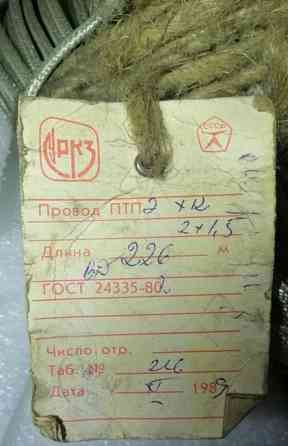 СССР
Провод ПТП
2×1,5
Длина 226 м
ГОСТ 24335-80
Число отр.
Таб. № 216
Дата XI 1989